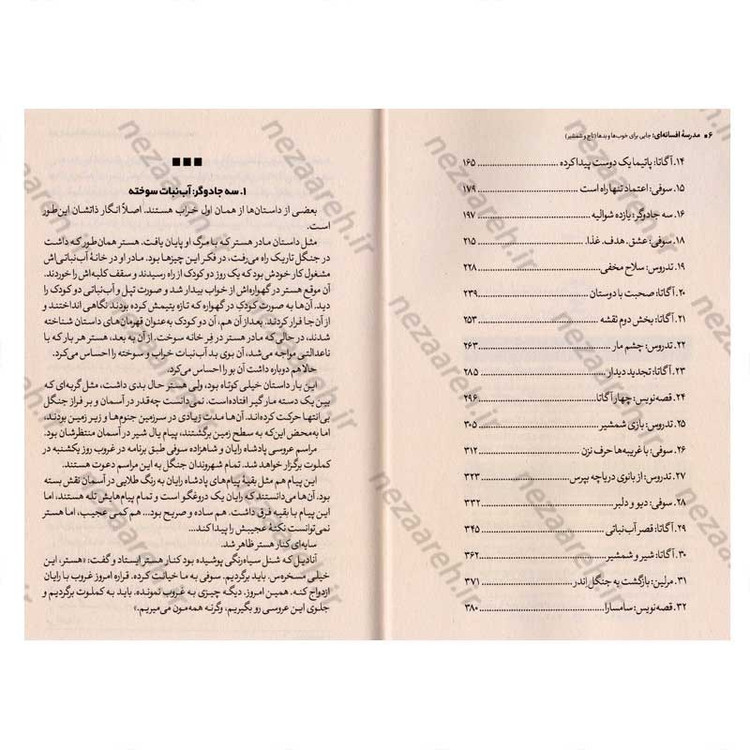 ۶ ■ مدرسهٔ افسانه‌ای: جایی برای خوب‌ها و بدها (تاج و شمشیر)
۱۴. آگاتا: پاتیما یک دوست پیدا کرده ........ ۱۶۵
۱۵. سوفی: اعتماد تنها راه است ........ ۱۷۹
۱۶. سه جادوگر: یازده شوالیه ........ ۱۹۷
۱۸. سوفی: عشق. هدف. غذا. ........ ۲۱۵
۱۹. تدروس: سلاح مخفی ........ ۲۲۸
۲۰. آگاتا: صحبت با دوستان ........ ۲۳۹
۲۱. آگاتا: بخش دوم نقشه ........ ۲۵۳
۲۲. تدروس: چشم مار ........ ۲۶۳
۲۳. آگاتا: تجدید دیدار ........ ۲۸۵
۲۴. قصه‌نویس: چهار آگاتا ........ ۲۹۶
۲۵. تدروس: بازی شمشیر ........ ۳۰۵
۲۶. سوفی: با غریبه‌ها حرف نزن ........ ۳۱۲
۲۷. تدروس: از بانوی دریاچه بپرس ........ ۳۲۳
۲۸. سوفی: دیو و دلبر ........ ۳۳۲
۲۹. آگاتا: قصر آب‌نباتی ........ ۳۴۵
۳۰. آگاتا: شیر و شمشیر ........ ۳۶۲
۳۱. مرلین: بازگشت به جنگل اِندر ........ ۳۷۱
۳۲. قصه‌نویس: سامسارا ........ ۳۸۰
۱. سه جادوگر: آب‌نبات سوخته
بعضی از داستان‌ها از همان اول خراب هستند. اصلاً انگار ذاتشان این‌طور
است.
مثل داستان مادر هستر که با مرگ او پایان یافت. هستر همان‌طور که داشت
در جنگل تاریک راه می‌رفت، در فکر این چیزها بود. مادر او در خانهٔ آب‌نباتی‌اش
مشغول کار خودش بود که یک روز دو کودک از راه رسیدند و سقف کلبه‌اش را خوردند.
آن موقع هستر در گهواره‌اش از خواب بیدار شد و صورت تپل و آب‌نباتی دو کودک را
دید. آن‌ها به صورت کودکِ در گهواره که تازه یتیمش کرده بودند نگاهی انداختند و
از آن‌جا فرار کردند. بعد از آن هم، آن دو کودک به‌عنوان قهرمان‌های داستان شناخته
شدند، در حالی‌که مادر هستر در فِر خانه سوخت. از آن به بعد، هستر هر بار که با
ناعدالتی مواجه می‌شد، آن بوی بد آب‌نبات خراب و سوخته را احساس می‌کرد.
حالا هم دوباره داشت آن بو را احساس می‌کرد.
این بار داستان خیلی کوتاه بود، ولی هستر حال بدی داشت، مثل گربه‌ای که
بین یک دسته مار گیر افتاده است. نمی‌دانست چه‌قدر در آسمان و بر فراز جنگل
بی‌انتها حرکت کرده‌اند. آن‌ها مدت زیادی در سرزمین جنوم‌ها و زیر زمین بودند،
اما به‌محض این‌که به سطح زمین برگشتند، پیام یال شیر در آسمان منتظرشان بود.
مراسم عروسی پادشاه رایان و شاهزاده سوفی طبق برنامه در غروب روز یکشنبه در
کملوت برگزار خواهد شد. تمام شهروندان جنگل به این مراسم دعوت هستند.
این پیام هم مثل بقیهٔ پیام‌های پادشاه رایان به رنگ طلایی در آسمان نقش بسته
بود. آن‌ها می‌دانستند که رایان یک دروغگو است و تمام پیام‌هایش تله هستند، اما
این پیام با بقیه فرق داشت. هم ساده و صریح بود... هم کمی عجیب، اما هستر
نمی‌توانست نکتهٔ عجیبش را پیدا کند...
سایه‌ای کنار هستر ظاهر شد.
آنادیل که شنل سیاه‌رنگی پوشیده بود کنار هستر ایستاد و گفت: «هستر، این
خیلی مسخره‌س. باید برگردیم. سوفی به ما خیانت کرده. قراره امروز غروب با رایان
ازدواج کنه. همین امروز. دیگه چیزی به غروب نمونده. باید به کملوت برگردیم و
جلوی این عروسی رو بگیریم، وگرنه همه‌مون می‌میریم.»
nezaareh.ir